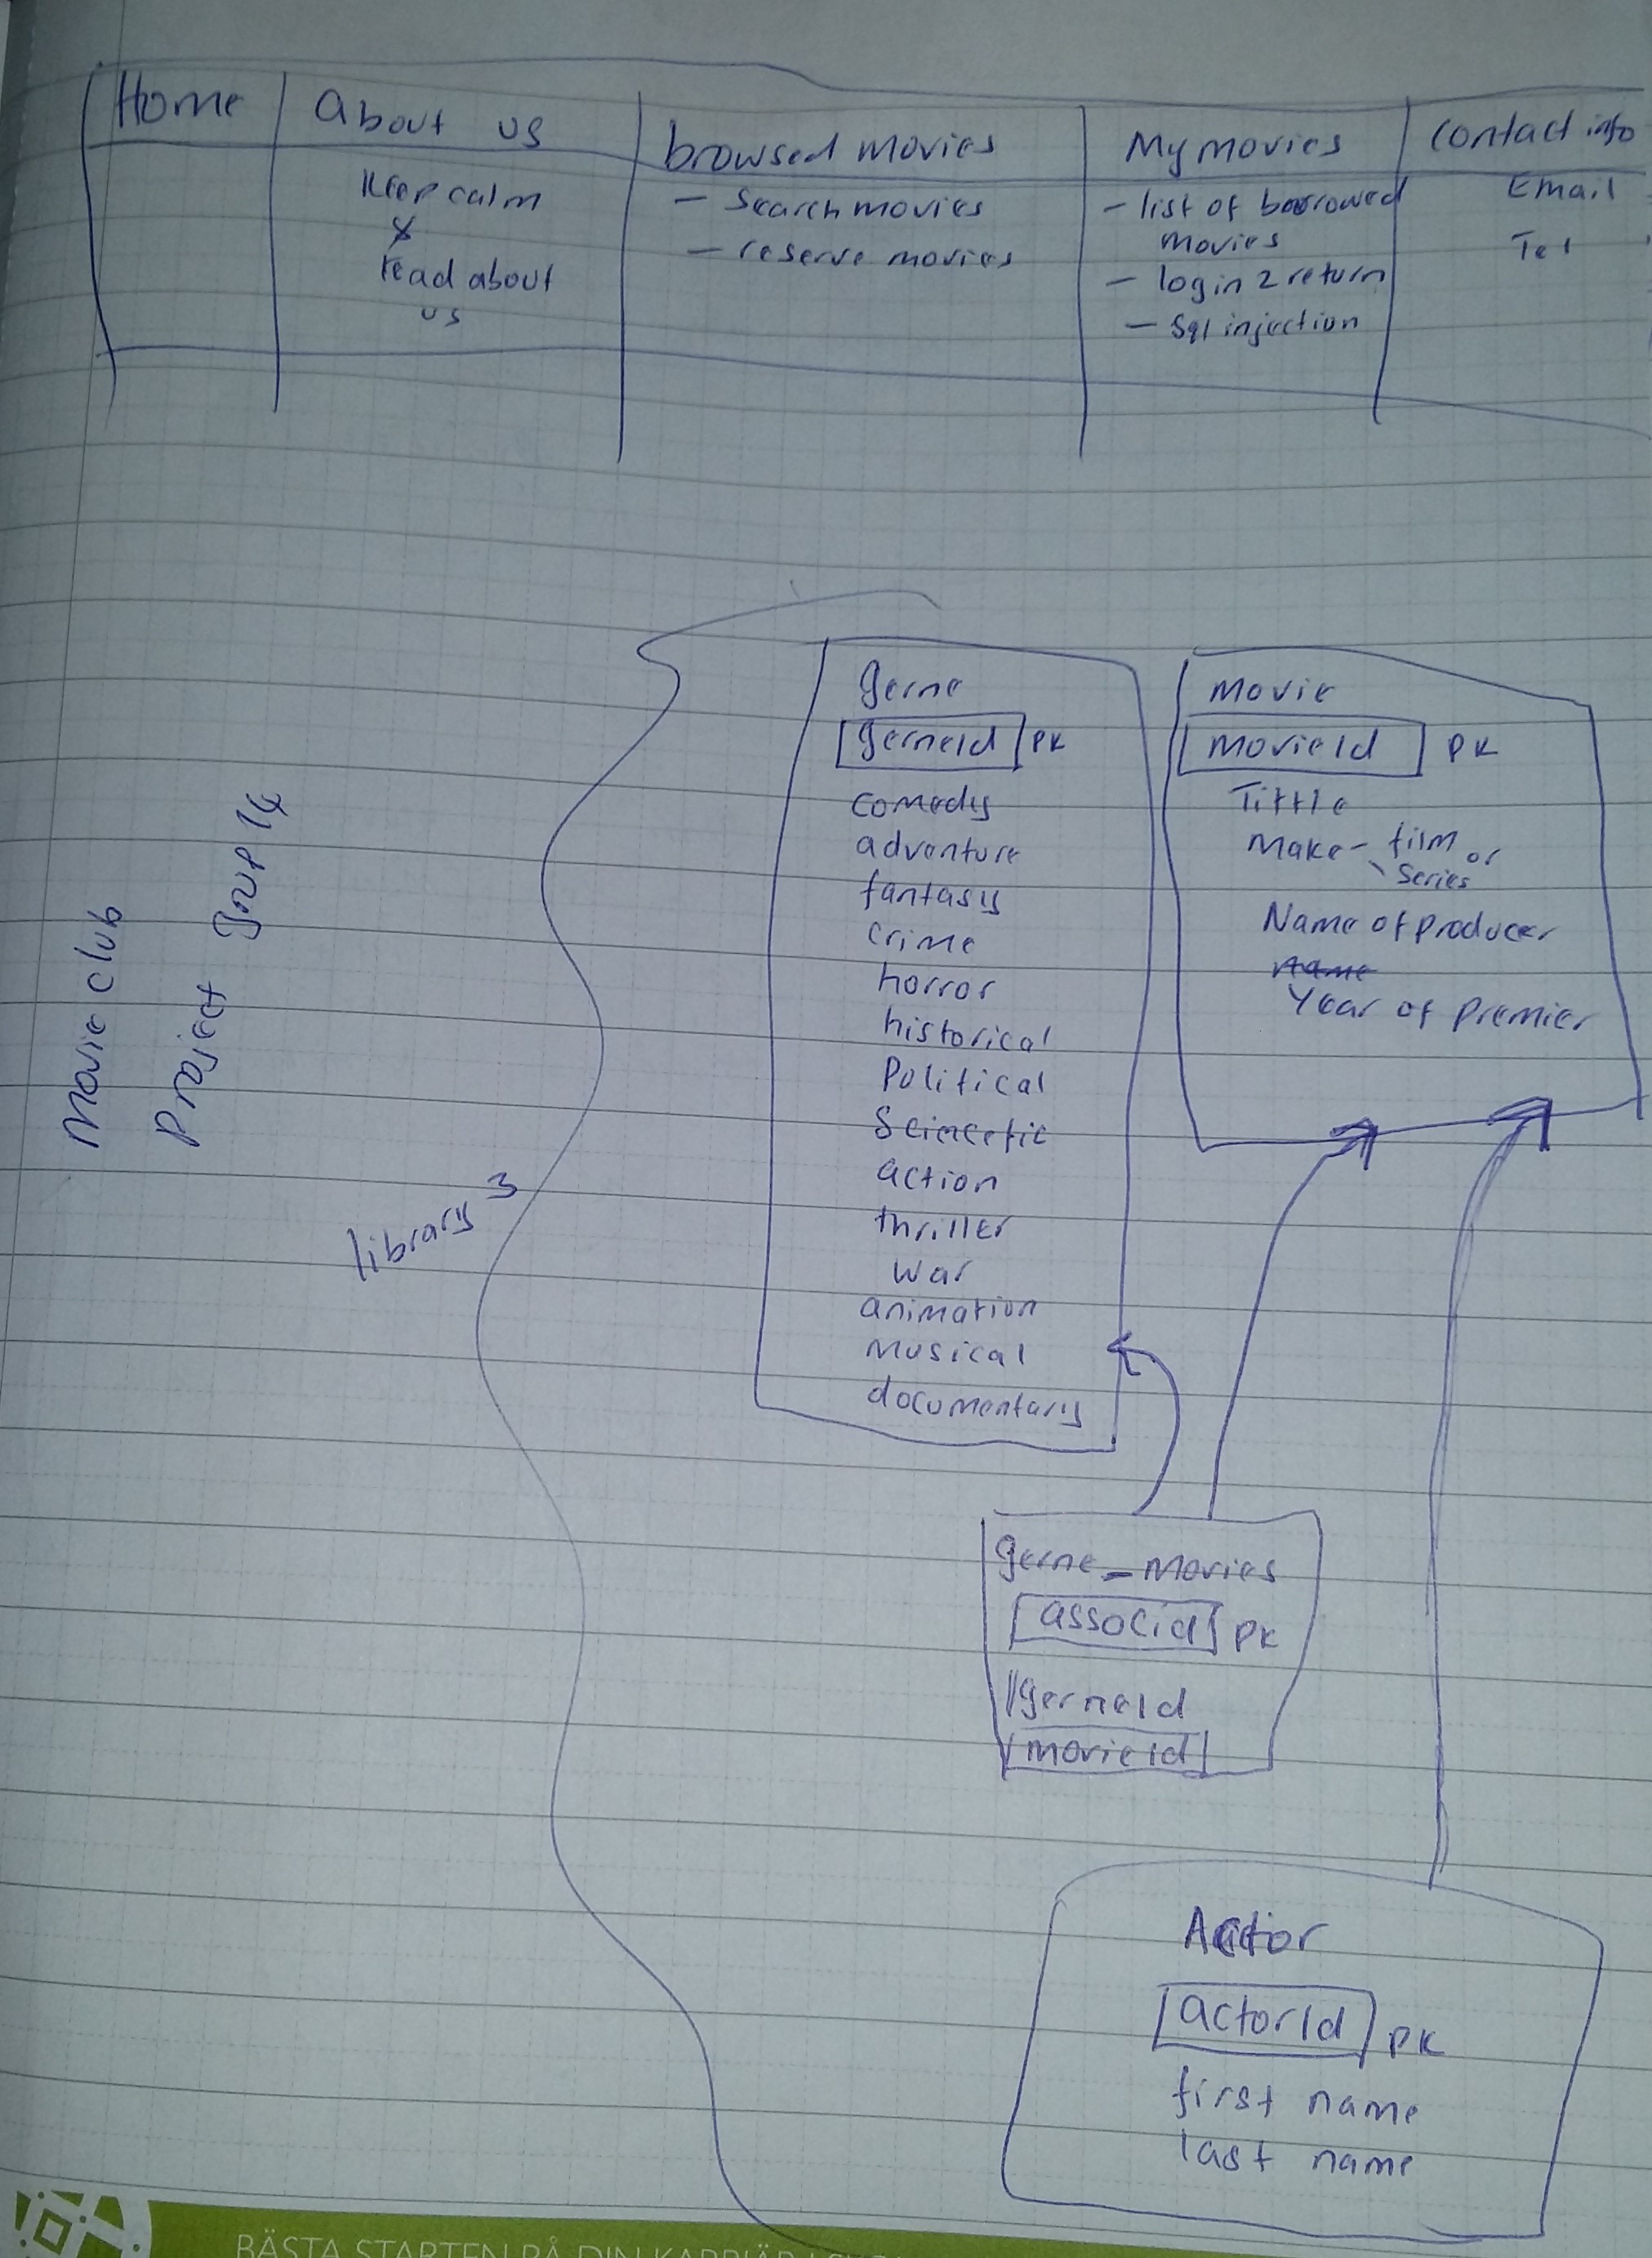 Home
About us
browsed movies
My movies
contact info
Keep calm
&
read about
us
- Search movies
- reserve movies
- list of borrowed
movies
- login 2 return
- Sql injection
Email
Tel
Movie club
Project Group 14
library 3
Gerne
GerneId PK
comedy
adventure
fantasy
crime
horror
historical
Political
Sciencefic
action
thriller
war
animation
musical
documentary
Movie
MovieId PK
Tittle
Make - film or
series
Name of producer
name
Year of Premier
Gerne_movies
associd PK
GerneId
movieId
Actor
actorId PK
first name
last name
BÄSTA STARTEN PÅ DIN KARRIÄR